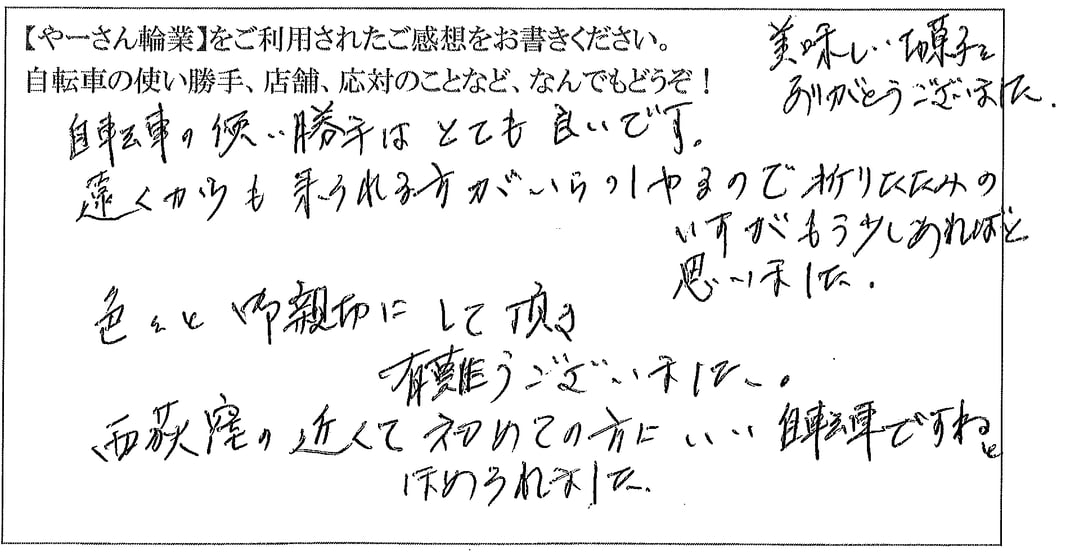 【やーさん輪業】をご利用されたご感想をお書きください。
自転車の使い勝手、店舗、応対のことなど、なんでもどうぞ！
美味しいお菓子を
ありがとうございました。
自転車の使い勝手はとても良いです。
遠くからも来られる方がいらっしやるので折りたたみの
いすがもう少しあればと
思いました。
色々と御親切にして頂き
有難うございました。
西荻窪の近くで初めての方にいい自転車ですねと
ほめられました。